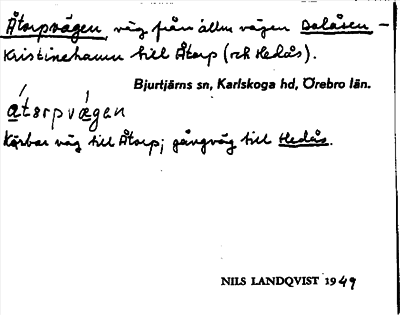 Åtorpvägen, väg från allm vägen Dalåsen -
Kristinehamn till Åtorp (och Hedås).
Bjurtjärns sn, Karlskoga hd, Örebro län.
átorpvägen
Körbar väg till Åtorp; gångväg till Hedås.
NILS LANDQVIST 1949